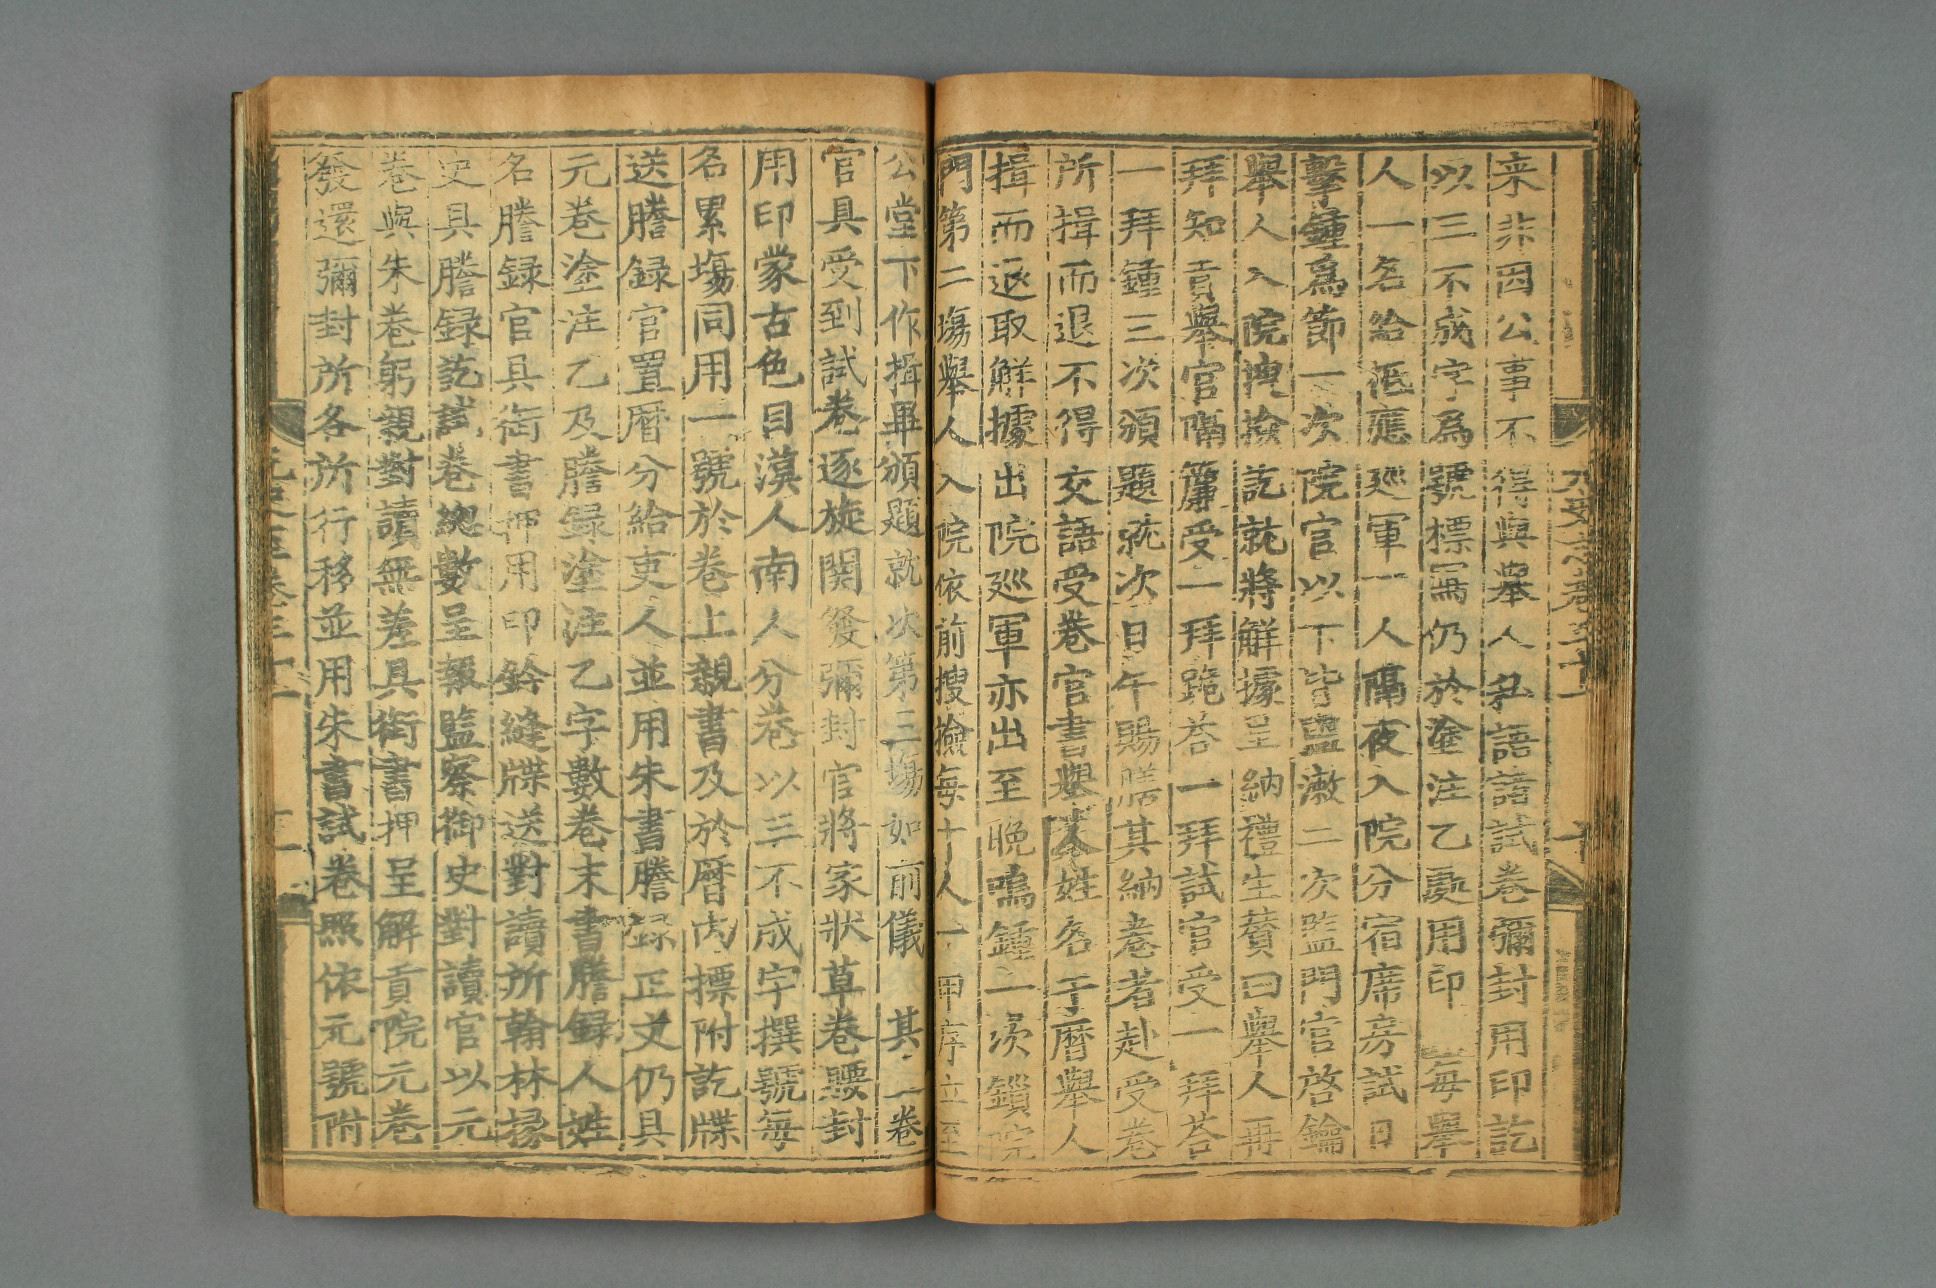 来非因公事不得與舉人私語諸試卷彌封用印訖
以三不成字為號標寫仍於塗注乙處用印 每舉
人一名給祗應巡軍一人隔夜入院分宿席房試日
擊鐘為節一次院官以下皆盥漱二次監門官啓鑰
舉人入院搜撿訖就將解據呈納禮生贊曰舉人再
拜知貢舉官隔簾受一拜跪荅一拜試官受一拜荅
一拜鐘三次頒題就次日午賜膳其納卷者赴受卷
所揖而退不得交語受卷官書舉人姓名于曆舉人
揖而退取解據出院巡軍亦出至晚鳴鐘一次鎖院
門第二塲舉人入院依前搜撿每十人一甲序立至
公堂下作揖畢頒題就次第三塲如前儀 其一卷
官具受到試卷逐旋關發彌封官將家狀草卷腰封
用印蒙古色目漢人南人分卷以三不成字撰號每
名累塲同用一號於卷上親書及於曆内標附訖牒
送謄録官置曆分給吏人並用朱書謄録正文仍具
元卷塗注乙及謄録塗注乙字數卷末書謄録人姓
名謄録官具銜書押用印鈐縫牒送對讀所翰林掾
史具謄録訖試卷緫數呈報監察御史對讀官以元
卷與朱卷躬親對讀無差具銜書押呈解貢院元卷
發還彌封所各所行移並用朱書試卷照依元號附